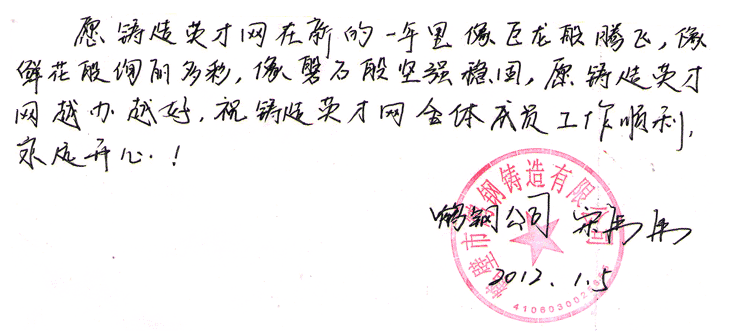 愿铸造英才网在新的一年里像巨龙般腾飞,像
鲜花般绚丽多彩,像磐石般坚强稳固,愿铸造英才
网越办越好,祝铸造英才网全体成员工作顺利,
家庭开心.!
鹤壁市鹤钢铸造有限公司
鹤钢公司
2012.1.5